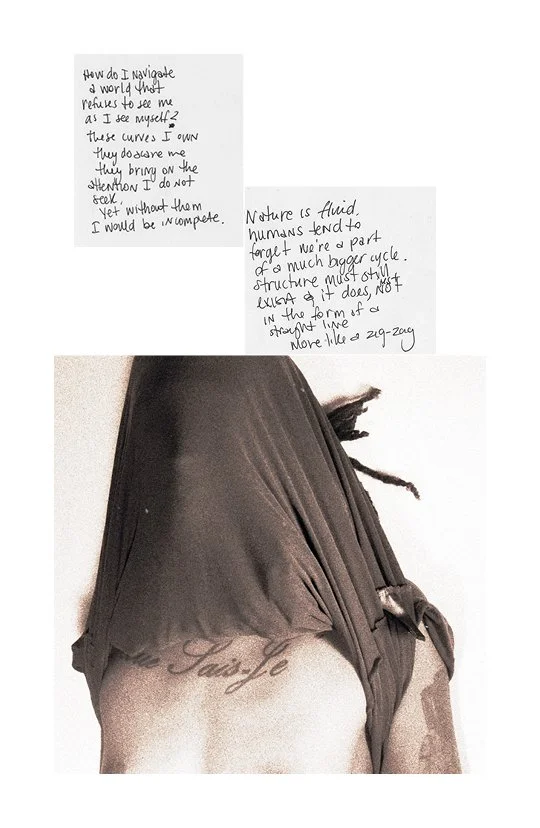 How do I navigate
a world that
refuses to see me
as I see myself?
these curves I own
they do scare me
they bring on the
attention I do not
seek.
Yet without them
I would be incomplete.
Nature is fluid.
humans tend to
forget we're a part
of a much bigger cycle.
structure must still
exist & it does, NOT
in the form of a
straight line
More like a zig-zag
ue Sais-Je